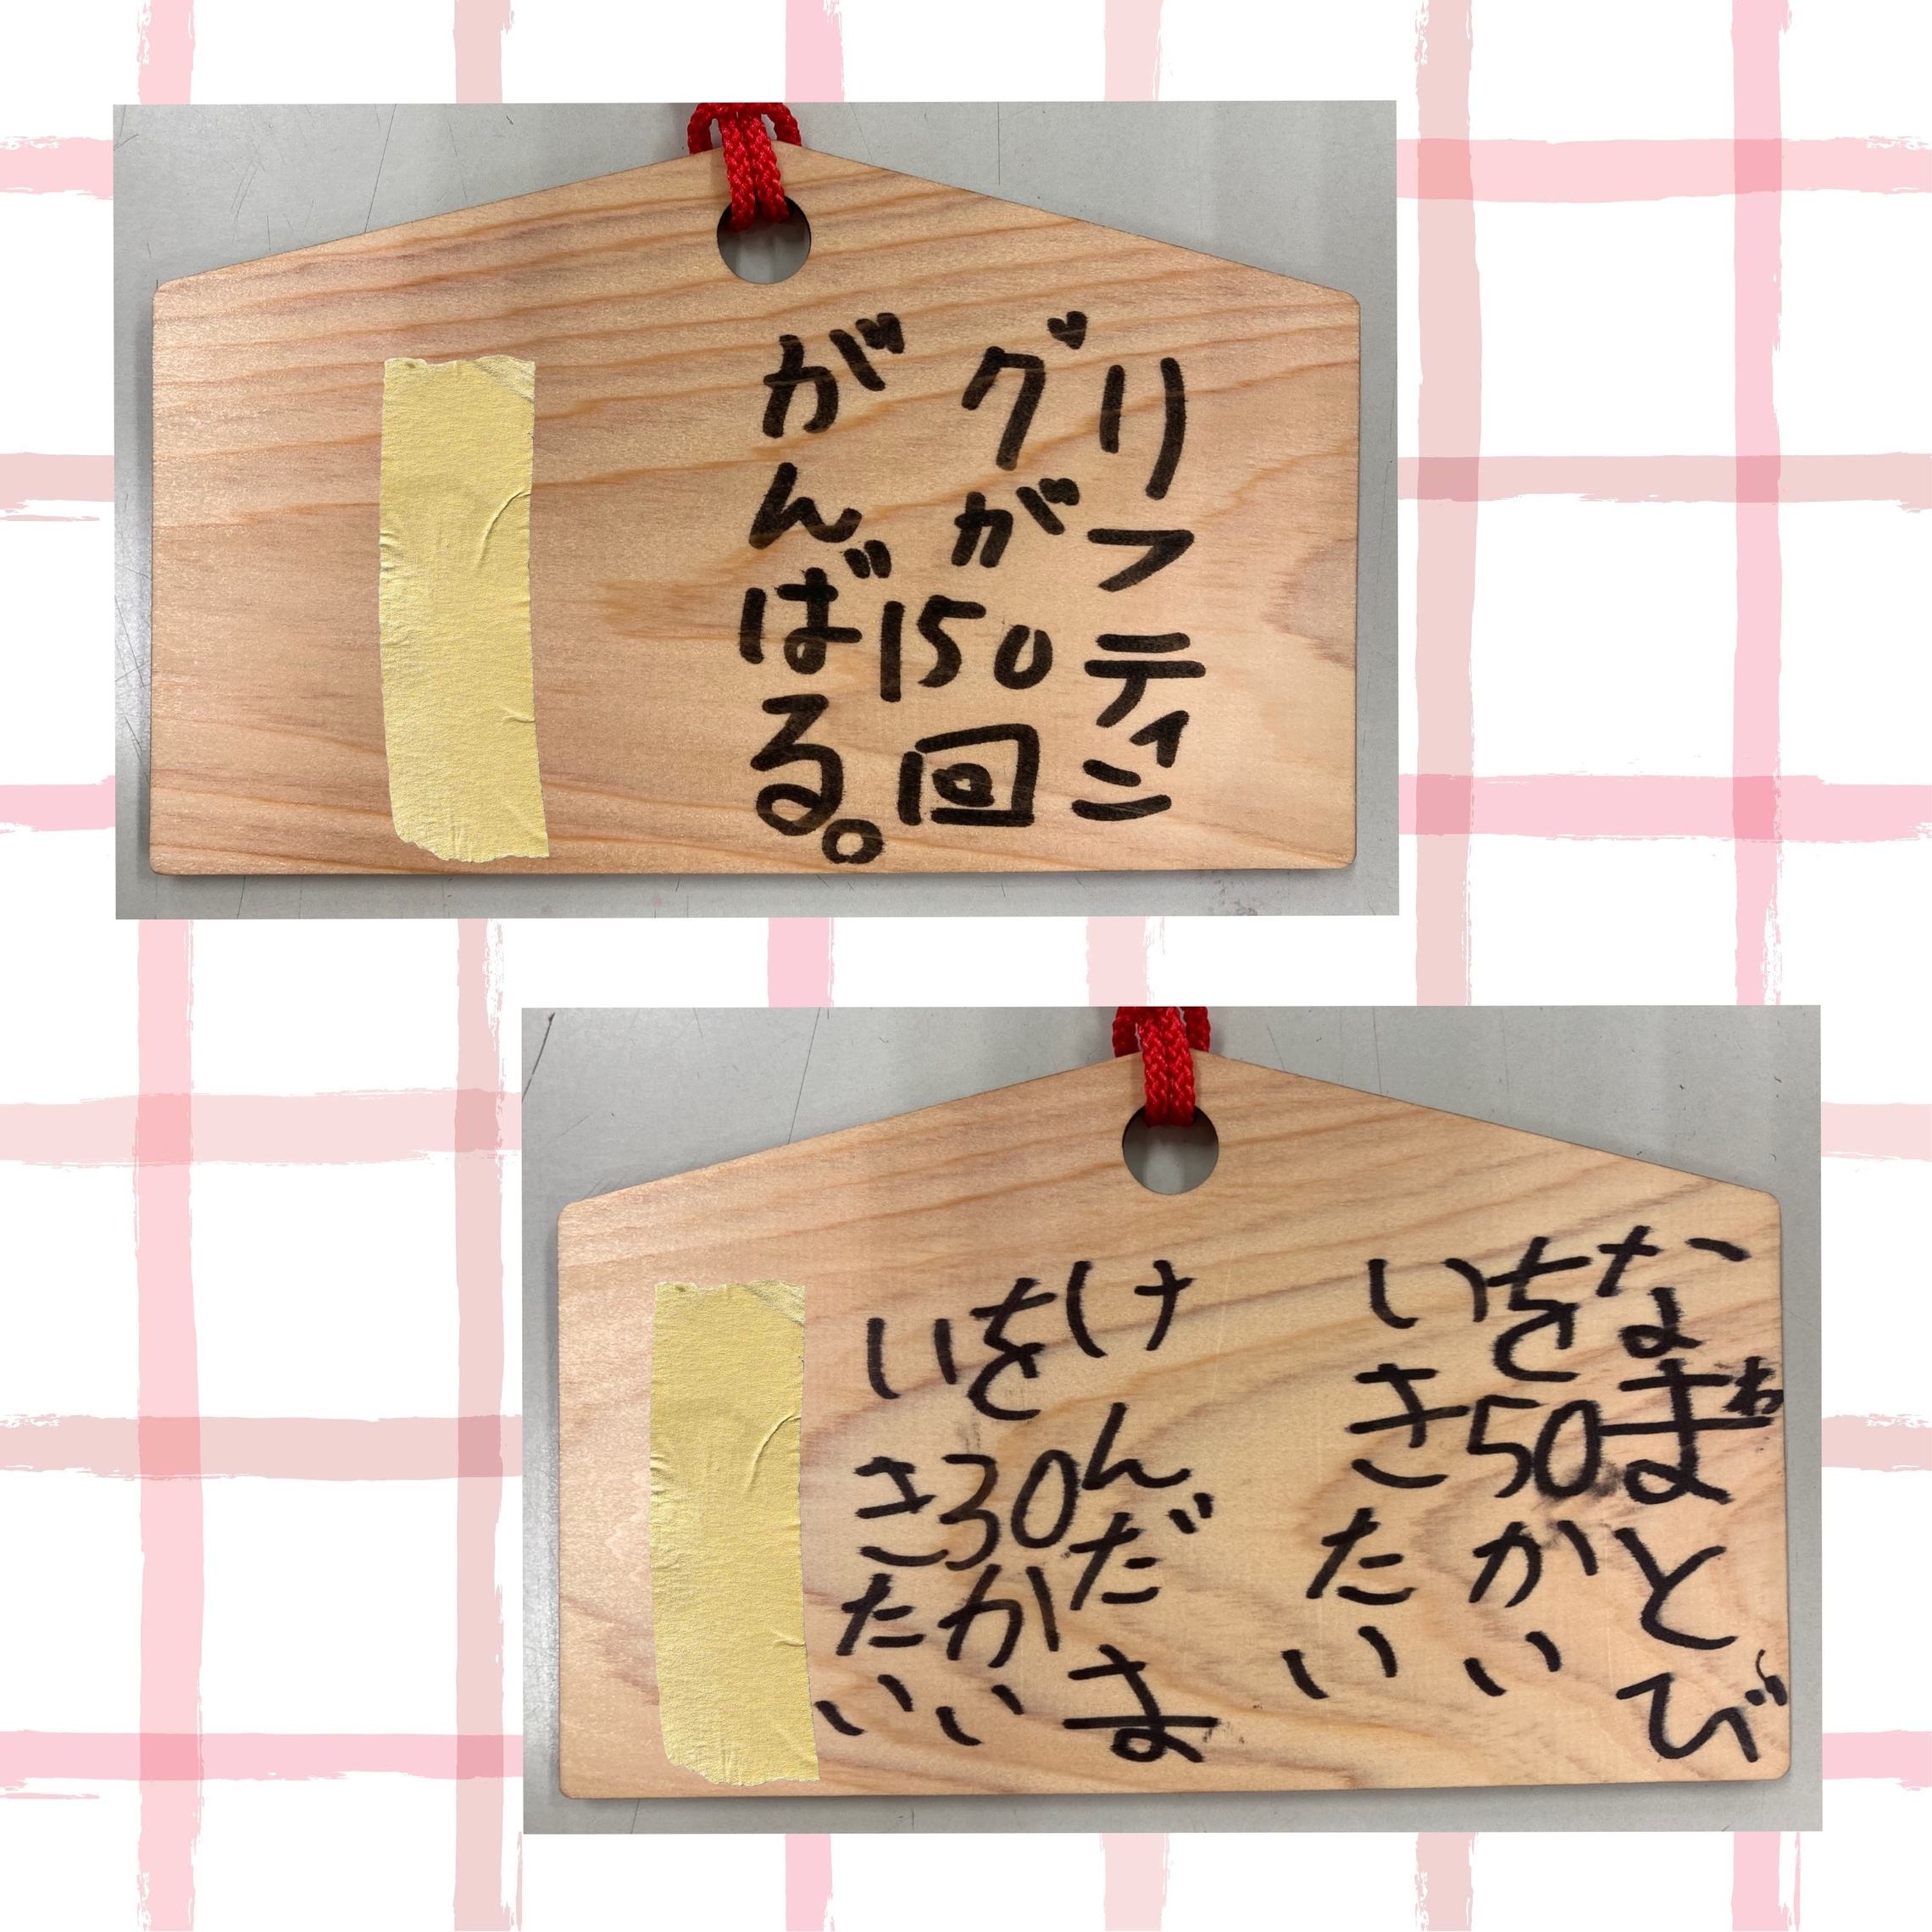 リフティン
グが150回
がんばる。
なわとび
を50かい
いきたい
けんだま
を30かい
いきたい